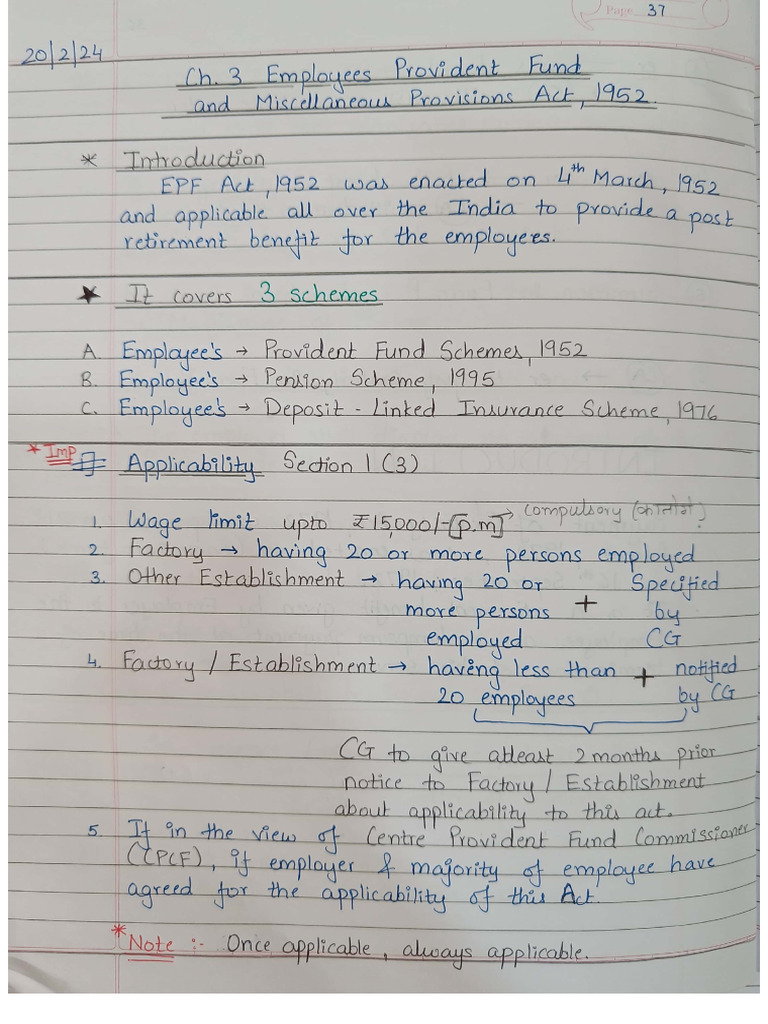 Page 37
20/2/24
Ch. 3 Employees Provident Fund
and Miscellaneous Provisions Act, 1952.
* Introduction
EPF Act, 1952 was enacted on 4th March, 1952
and applicable all over the India to provide a post
retirement benefit for the employees.
★ It covers 3 schemes
A. Employee's → Provident Fund Schemes, 1952
B. Employee's → Pension Scheme, 1995
C. Employee's → Deposit - Linked Insurance Scheme, 1976
* Imp Applicability Section 1 (3)
1. Wage limit upto ₹15,000/- [p.m] → Compulsory
2. Factory → having 20 or more persons employed
3. Other Establishment → having 20 or + Specified
more persons by
employed CG
4. Factory / Establishment → having less than + notified
20 employees by CG
CG to give atleast 2 months prior
notice to Factory / Establishment
about applicability to this act.
5. If in the view of Centre Provident Fund Commissioner
(CPCF), if employer & majority of employee have
agreed for the applicability of this Act.
* Note :- Once applicable, always applicable.